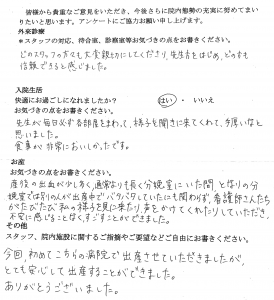 皆様から貴重なご意見をいただき、今後さらに院内態勢の充実に努めてまい
りたいと思います。アンケートにご協力お願い申し上げます。
外来診療
*スタッフの対応、待合室、診察室等お気づきの点をお書きください。
どのスタッフの方々も大変親切にしてくださり、先生方をはじめ、どの方も
信頼できると感じました。
入院生活
快適にお過ごしになれましたか? はい ・ いいえ
お気づきの点をお書きください。
先生が毎日必ず各部屋をまわって、様子を聞きに来てくれて、心強いなと
思いました。
食事が非常においしかったです。
お産
お気づきの点をお書きください。
産後の出血が少し多く、通常よりも長く分娩室にいた間、となりの分
娩室では別の人が出産中でバタバタしていたにも関わらず、看護師さんたち
がたびたび私の様子を見に来たり、声をかけてくれたりしていただき、
不安に感じることなくすごすことができました。
その他
スタッフ、院内施設に関するご指摘やご要望などご自由にお書きください。
今回、初めてこちらの病院で出産させていただきましたが、
とても安心して出産することができました。
ありがとうございました。